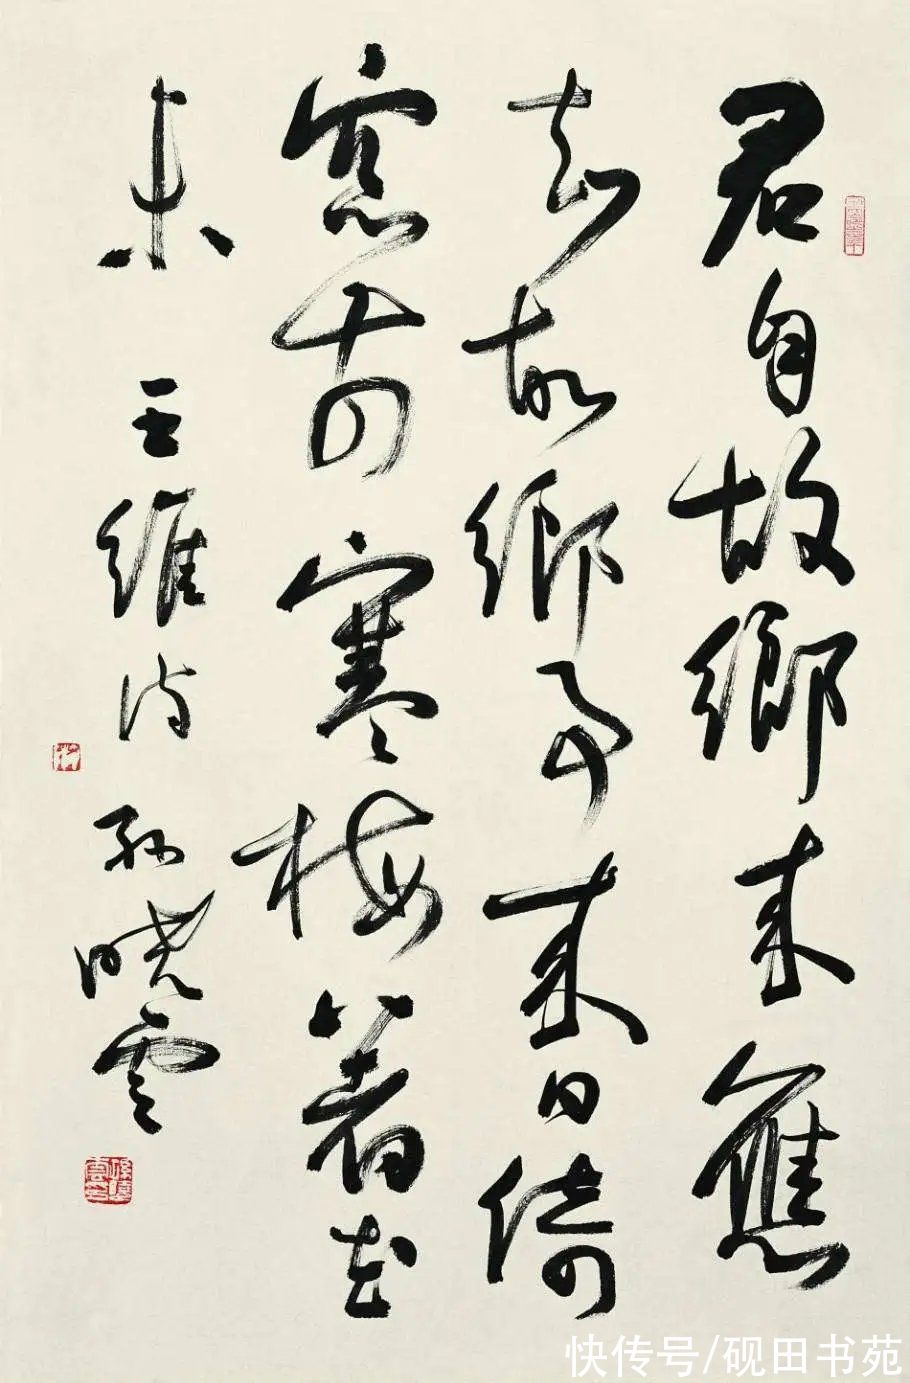 君自故鄉來應
知故鄉事來日倚
窓前寒梅著花
未 王維詩 孫曉雲
快传号/砚田书苑